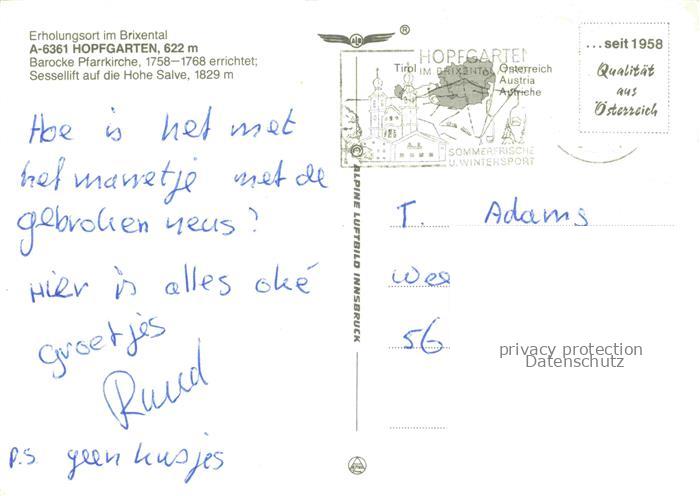 Erholungsort im Brixental
A-6361 HOPFGARTEN, 622 m
Barocke Pfarrkirche, 1758–1768 errichtet;
Sessellift auf die Hohe Salve, 1829 m
Hoe is het met
het mannetje met de
gebroken neus?
Hier is alles oké
groetjes
Ruud
P.S. geen kusjes
ALPINE LUFTBILD INNSBRUCK
HOPFGARTEN
IM BRIXENTAL
Tirol
Österreich
Austria
Autriche
SOMMERFRISCHE
U. WINTERSPORT
...seit 1958
Qualität
aus
Österreich
T. Adams
56
privacy protection
Datenschutz